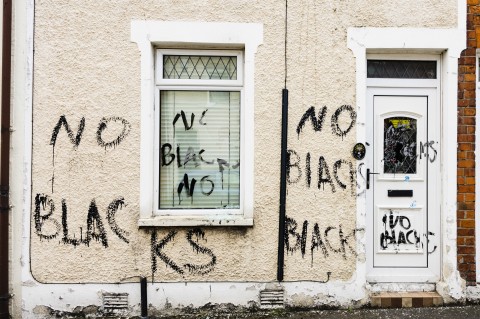 NO
BLACKS
NO
BLACKS
NO
NO
BLACKS
BLACKS
NO
BLACKS